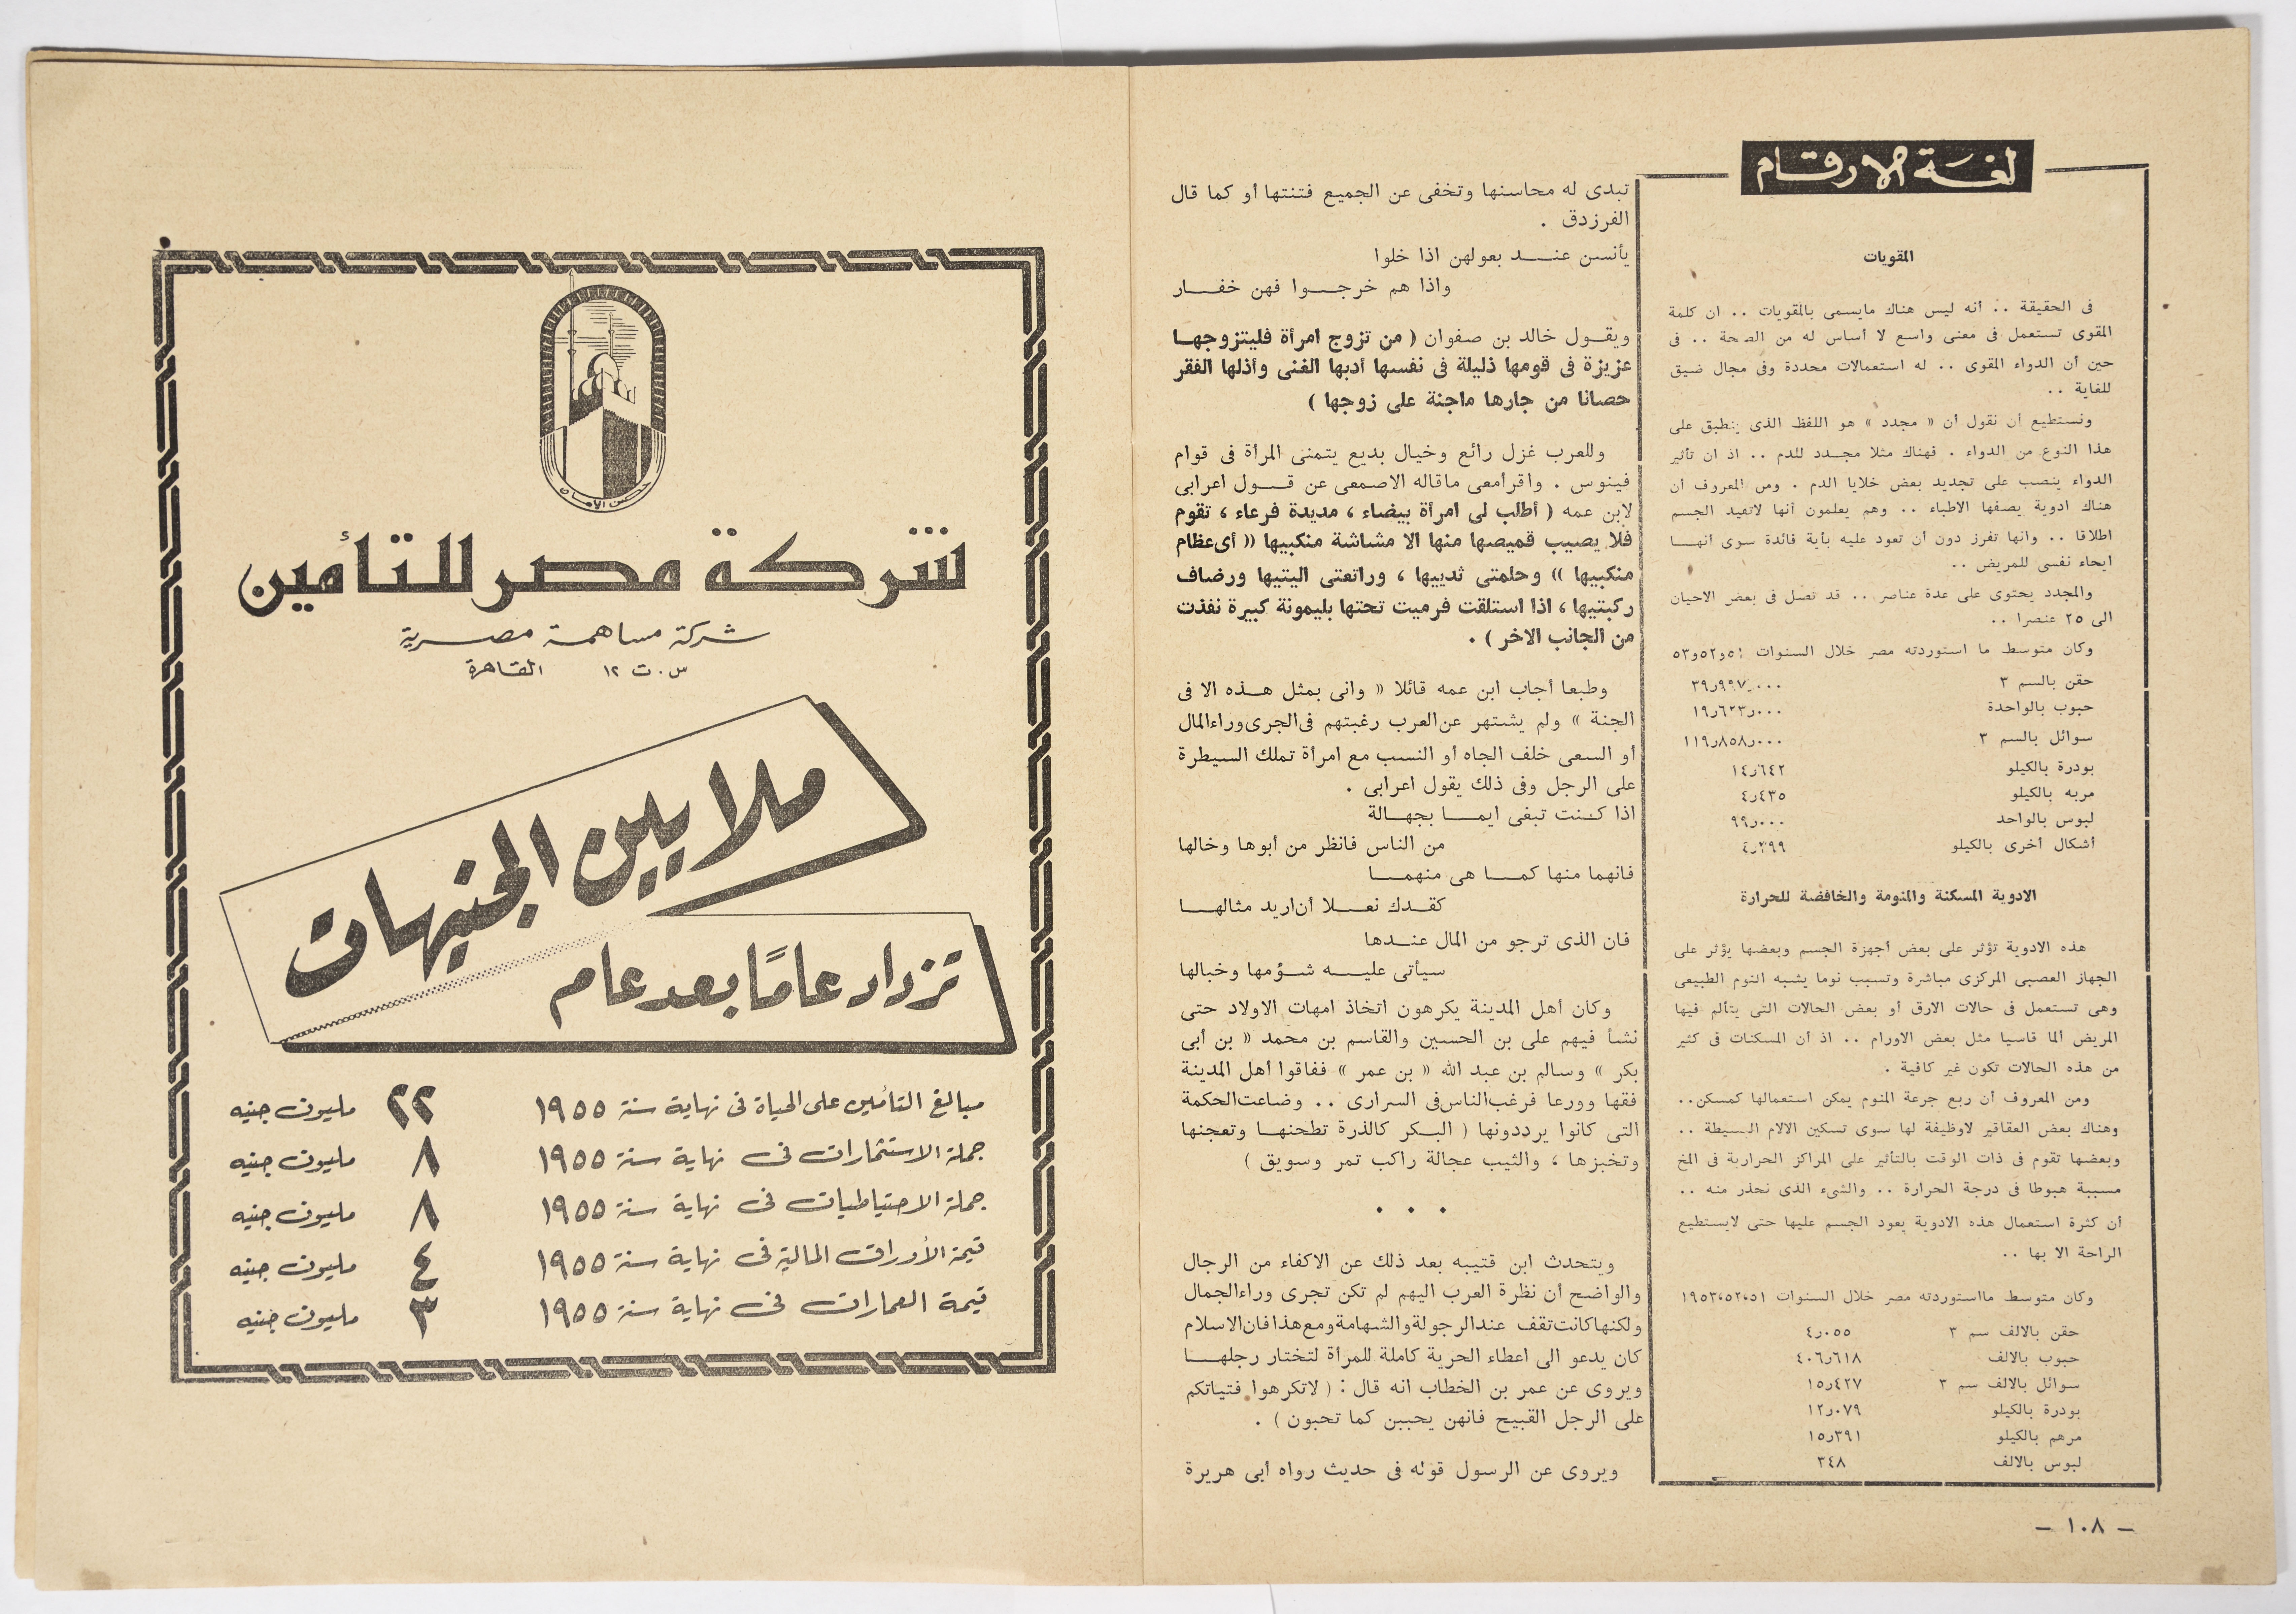 لغة الارقام
المقويات
فى الحقيقة .. أنه ليس هناك مايسمى بالمقويات .. ان كلمة
المقوى تستعمل فى معنى واسع لا أساس له من الصحة .. فى
حين أن الدواء المقوى .. له استعمالات محددة وفى مجال ضيق
للغاية ..
ونستطيع أن نقول أن « مجدد » هو اللفظ الذى ينطبق على
هذا النوع من الدواء . فهناك مثلا مجدد للدم .. اذ ان تأثير
الدواء ينصب على تجديد بعض خلايا الدم . ومن المعروف أن
هناك ادوية يصفها الاطباء .. وهم يعلمون أنها لاتفيد الجسم
اطلاقا .. وانها تفرز دون أن تعود عليه بأية فائدة سوى انهـا
ايحاء نفسى للمريض ..
والمجدد يحتوى على عدة عناصر .. قد تصل فى بعض الاحيان
الى ٢٥ عنصرا ..
وكان متوسط ما استوردته مصر خلال السنوات ٥١و٥٢و٥٣
حقن بالسم ٣ ٣٩ر٩٩٧ر٠٠٠
حبوب بالواحدة ١٩ر٦٢٣ر٠٠٠
سوائل بالسم ٣ ١١٩ر٨٥٨ر٠٠٠
بودرة بالكيلو ١٤ر٦٤٢
مربه بالكيلو ٤ر٤٣٥
لبوس بالواحد ٩٩ر٠٠٠
أشكال أخرى بالكيلو ٤ر٢٩٩
الادوية المسكنة والمنومة والخافضة للحرارة
هذه الادوية تؤثر على بعض أجهزة الجسم وبعضها يؤثر على
الجهاز العصبى المركزى مباشرة وتسبب نوما يشبه النوم الطبيعى
وهى تستعمل فى حالات الارق أو بعض الحالات التى يتألم فيها
المريض ألما قاسيا مثل بعض الاورام .. اذ أن المسكنات فى كثير
من هذه الحالات تكون غير كافية .
ومن المعروف أن ربع جرعة المنوم يمكن استعمالها كمسكن..
وهناك بعض العقاقير لاوظيفة لها سوى تسكين الالام البسيطة ..
وبعضها تقوم فى ذات الوقت بالتأثير على المراكز الحرارية فى المخ
مسببة هبوطا فى درجة الحرارة .. والشىء الذى نحذر منه ..
أن كثرة استعمال هذه الادوية يعود الجسم عليها حتى لايستطيع
الراحة الا بها ..
وكان متوسط مااستوردته مصر خلال السنوات ١٩٥٣،٥٢،٥١
حقن بالالف سم ٣ ٤ر٠٥٥
حبوب بالالف ٤٠٦ر٦١٨
سوائل بالالف سم ٣ ١٥ر٤٢٧
بودرة بالكيلو ١٢ر٠٧٩
مرهم بالكيلو ١٥ر٣٩١
لبوس بالالف ٣٤٨
– ١٠٨ –
تبدى له محاسنها وتخفى عن الجميع فتنتها أو كما قال
الفرزدق .
يأنسن عنـــد بعولهن اذا خلوا
واذا هم خرجـــوا فهن خفـــار
ويقـول خالد بن صفوان ( من تزوج امرأة فليتزوجهـا
عزيزة فى قومها ذليلة فى نفسها أدبها الغنى وأذلها الفقر
حصانا من جارها ماجنة على زوجها )
وللعرب غزل رائع وخيال بديع يتمنى المرأة فى قوام
فينوس . واقرأمعى ماقاله الاصمعى عن قـول اعرابى
لابن عمه ( أطلب لى امرأة بيضاء ، مديدة فرعاء ، تقوم
فلا يصيب قميصها منها الا مشاشة منكبيها (( أىعظام
منكبيها )) وحلمتى ثدييها ، وراتعتى اليتيها ورضاف
ركبتيها ، اذا استلقت فرميت تحتها بليمونة كبيرة نفذت
من الجانب الاخر ) .
وطبعا أجاب ابن عمه قائلا « وانى بمثل هـذه الا فى
الجنة » ولم يشتهر عنالعرب رغبتهم فىالجرىوراءالمال
أو السعى خلف الجاه أو النسب مع امرأة تملك السيطرة
على الرجل وفى ذلك يقول اعرابى .
اذا كـنت تبغى ايمـــا بجهـالة
من الناس فانظر من أبوها وخالها
فانهما منها كمـــا هى منهمـــا
كقـدك نعـــلا أناريد مثالهـــا
فان الذى ترجو من المال عنـدها
سيأتى عليـــه شـؤمها وخبالها
وكان أهل المدينة يكرهون اتخاذ امهات الاولاد حتى
نشأ فيهم على بن الحسين والقاسم بن محمد « بن أبى
بكر » وسالم بن عبد الله « بن عمر » ففاقوا أهل المدينة
فقها وورعا فرغبالناسفى السرارى .. وضاعتالحكمة
التى كانوا يرددونها ( البـكر كالذرة تطحنهـا وتعجنها
وتخبزها ، والثيب عجالة راكب تمر وسويق )
• • •
ويتحدث ابن قتيبه بعد ذلك عن الاكفاء من الرجال
والواضح أن نظرة العرب اليهم لم تكن تجرى وراءالجمال
ولكنهاكانتتقف عندالرجولةوالشهامةومعهذافانالاسلام
كان يدعو الى اعطاء الحرية كاملة للمرأة لتختار رجلهـــا
ويروى عن عمر بن الخطاب انه قال : ( لاتكرهوا فتياتكم
على الرجل القبيح فانهن يحببن كما تحبون ) .
ويروى عن الرسول قوله فى حديث رواه أبى هريرة
حصن الأمان
شركة مصر للتأمين
شركة مساهمة مصرية
س.ت ١٢ القاهرة
ملايين الجنيهات
تزداد عامًا بعد عام
مبالغ التأمين على الحياة فى نهاية سنة ١٩٥٥ ٢٢ مليون جنيه
جملة الاستثمارات فى نهاية سنة ١٩٥٥ ٨ مليون جنيه
جملة الاحتياطيات فى نهاية سنة ١٩٥٥ ٨ مليون جنيه
قيمة الأوراق المالية فى نهاية سنة ١٩٥٥ ٤ مليون جنيه
قيمة العمارات فى نهاية سنة ١٩٥٥ ٣ مليون جنيه